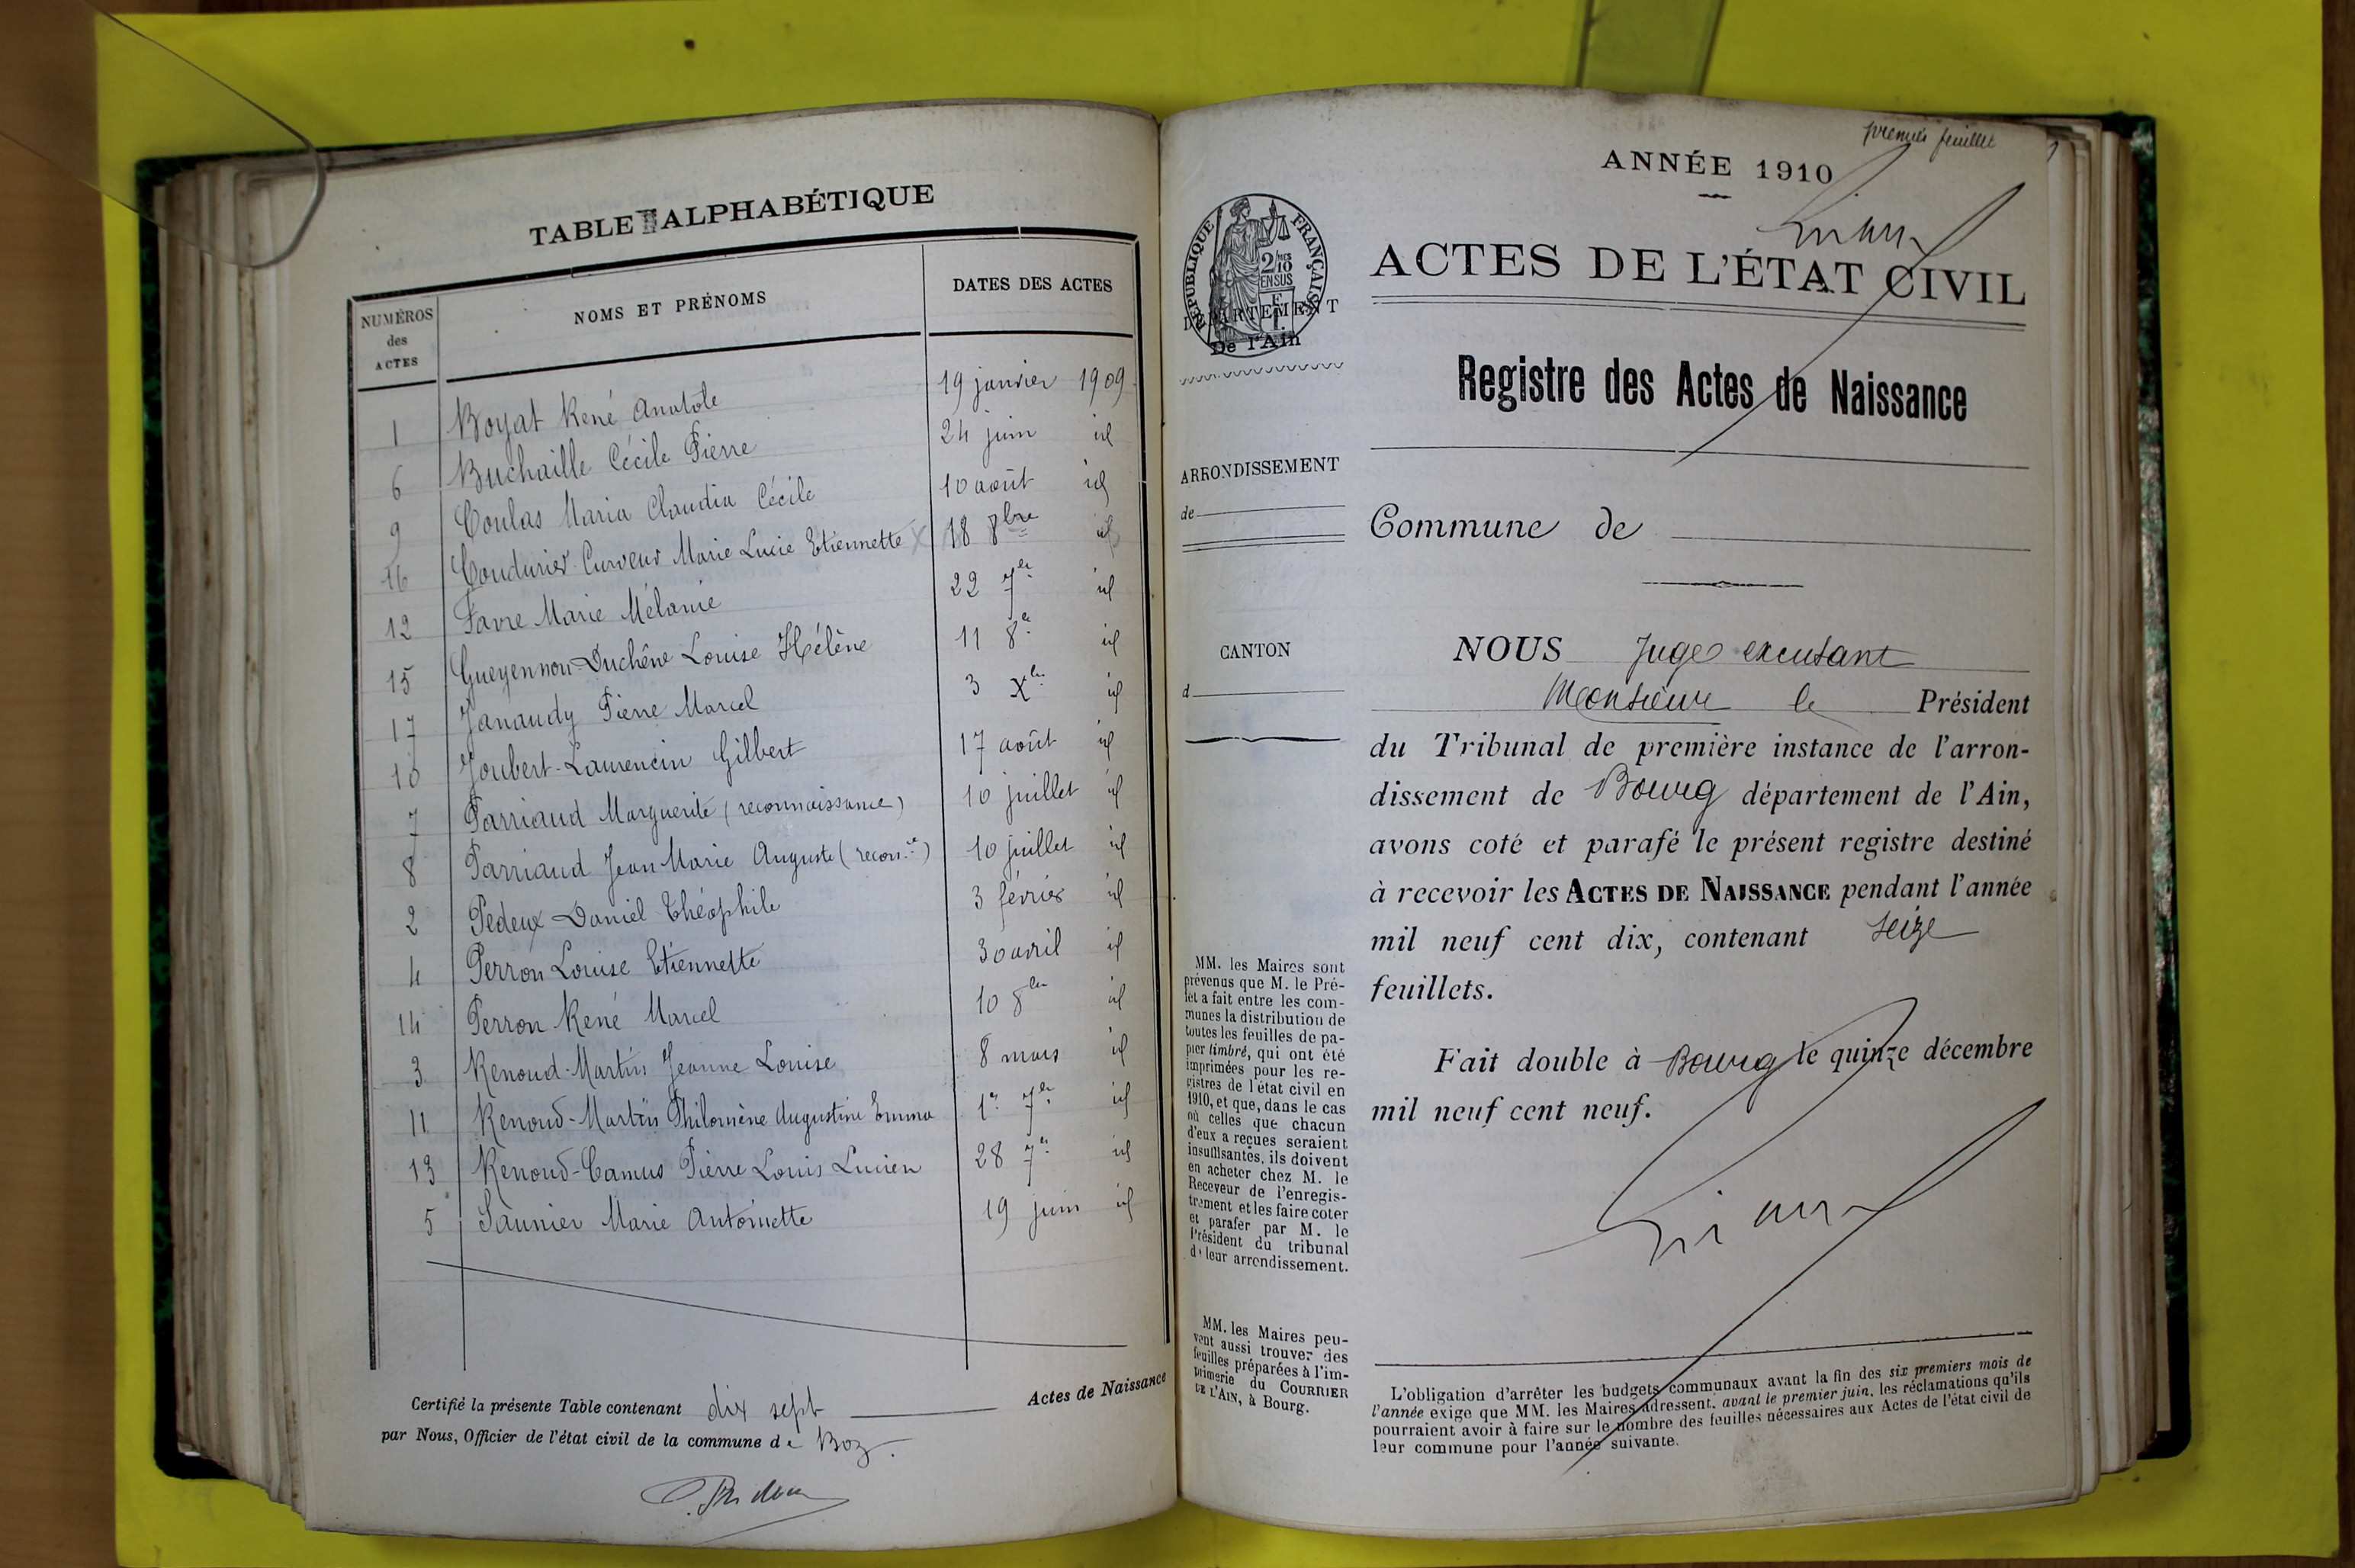 TABLE ALPHABÉTIQUE
NUMÉROS des ACTES NOMS ET PRÉNOMS DATES DES ACTES
1 Boyat René Anatole 19 janvier 1909
6 Buchaille Cécile Pierre 24 juin id
9 Coulas Maria Claudia Cécile 10 août id
16 Couturier Curveur Marie Lucie Etiennette 18 8bre id
12 Favre Marie Mélanie 22 7er id
15 Gueyennon-Duchêne Louise Hélène 11 8e id
17 Janaudy Pierre Marcel 3 Xbre id
10 Joubert-Laurencin Gilbert 17 août id
7 Parriaud Marguerite (reconnaissance) 10 juillet id
8 Parriaud Jean Marie Auguste (reconce) 10 juillet id
2 Pedeux Daniel Théophile 3 février id
4 Perron Louise Etiennette 30 avril id
14 Perron René Marcel 10 8bre id
3 Renoud-Martin Jeanne Louise 8 mars id
11 Renoud-Martin Philomène Augustine Emma 1er 7er id
13 Renoud-Camus Pierre Louis Lucien 28 7er id
5 Saunier Marie Antoinette 19 juin id
Certifié la présente Table contenant dix sept Actes de Naissance
par Nous, Officier de l'état civil de la commune de Boz.
premier feuillet
ANNÉE 1910
RÉPUBLIQUE FRANÇAISE
2/10
EN SUS
DÉPARTEMENT
De l'Ain
ACTES DE L'ÉTAT CIVIL
Registre des Actes de Naissance
ARRONDISSEMENT
de
Commune de
CANTON
d
NOUS Juge excusant
Monsieur le Président
du Tribunal de première instance de l'arron-
dissement de Bourg département de l'Ain,
avons coté et parafé le présent registre destiné
à recevoir les ACTES DE NAISSANCE pendant l'année
mil neuf cent dix, contenant seize
feuillets.
Fait double à Bourg le quinze décembre
mil neuf cent neuf.
MM. les Maires sont
prévenus que M. le Pré-
fet a fait entre les com-
munes la distribution de
toutes les feuilles de pa-
pier timbré, qui ont été
imprimées pour les re-
gistres de l'état civil en
1910, et que, dans le cas
où celles que chacun
d'eux a reçues seraient
insuffisantes, ils doivent
en acheter chez M. le
Receveur de l'enregis-
trement et les faire coter
et parafer par M. le
Président du tribunal
de leur arrondissement.
MM. les Maires peu-
vent aussi trouver des
feuilles préparées à l'im-
primerie du COURRIER
DE L'AIN, à Bourg.
L'obligation d'arrêter les budgets communaux avant la fin des six premiers mois de
l'année exige que MM. les Maires adressent, avant le premier juin, les réclamations qu'ils
pourraient avoir à faire sur le nombre des feuilles nécessaires aux Actes de l'état civil de
leur commune pour l'année suivante.